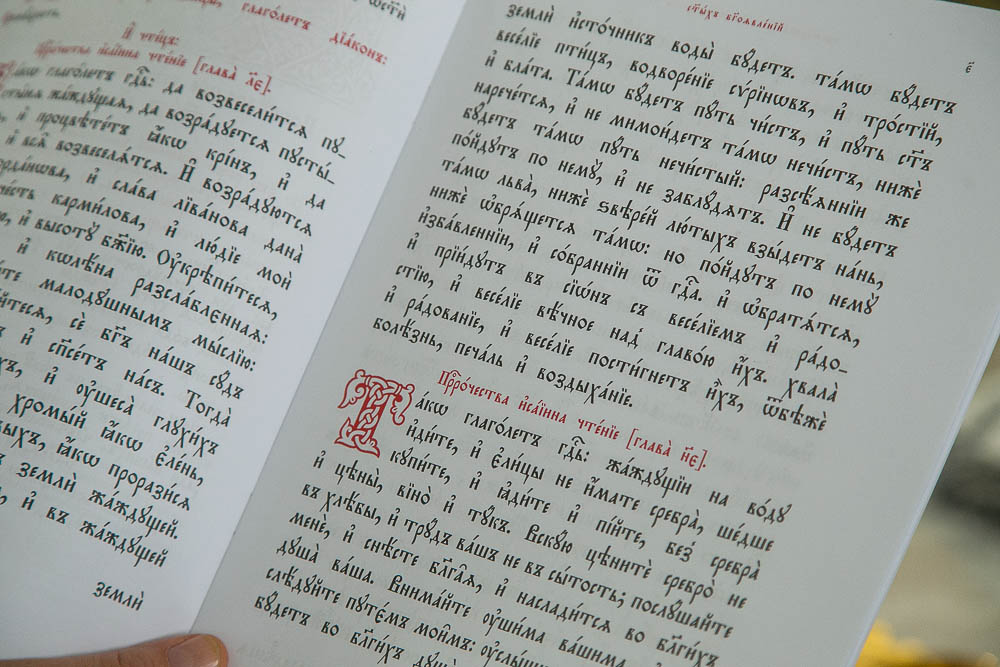 глаго́летъ дїа́конъ:
И҆ чте́цъ:
Прⷪ҇ро́чества и҆са́їина чте́нїе [глава̀ л҃є].
Та́кѡ глаго́летъ гдⷭ҇ь: да возвесели́тсѧ пꙋ-
жа́ждꙋщаѧ, да возра́дꙋетсѧ пꙋсты́-
и҆ процвѣте́тъ ꙗ҆́кѡ крі́нъ, и҆ да
и҆ всѧ̑ возвеселѧ́тсѧ. И҆ возра́дꙋютсѧ
і҆ѻрда́нѡва, и҆ сла́ва лїва́нова дана̀
карми́лова, и҆ лю́дїе мои̑
и҆ высотꙋ̀ бж҃їю. Оу҆крѣпи́тесѧ,
и҆ кѡлѣ́на разсла́блєннаѧ:
малодꙋ́шнымъ мы́слїю:
сѐ бг҃ъ на́шъ сꙋ́дъ
и҆ сп҃се́тъ на́съ. Тогда̀
и҆ ᲂу҆шеса̀ глꙋхи́хъ
хромы́й ꙗ҆́кѡ є҆ле́нь,
ꙗ҆́кѡ прорази́сѧ
землѝ жа́ждꙋщей.
и҆ въ жа́ждꙋщей
землѝ
ст҃ы́хъ бг҃оѧвле́нїй
є҃
землѝ и҆сто́чникъ воды̀ бꙋ́детъ. та́мѡ бꙋ́детъ
весе́лїе пти́цъ, водворе́нїе сѵ́рїнѡвъ, и҆ тро́стїй,
и҆ бла́та. Та́мѡ бꙋ́детъ пꙋ́ть чи́стъ, и҆ пꙋ́ть ст҃ъ
нарече́тсѧ, и҆ не мимои́детъ та́мѡ нечи́стъ, нижѐ
бꙋ́детъ та́мѡ пꙋ́ть нечи́стый: разсѣ́ѧннїи же
по́йдꙋтъ по немꙋ̀, и҆ не заблꙋ́дѧтъ. И҆ не бꙋ́детъ
та́мѡ льва̀, нижѐ ѕвѣре́й лю́тыхъ взы́детъ на́нь,
нижѐ ѡ҆брѧ́щетсѧ та́мѡ: но по́йдꙋтъ по немꙋ̀
и҆зба́вленнїи, и҆ со́браннїи ѿ гдⷭ҇а. и҆ ѡ҆братѧ́тсѧ,
и҆ прїи́дꙋтъ въ сїѡ́нъ съ весе́лїемъ и҆ ра́до-
стїю, и҆ весе́лїе вѣ́чное над̾ главо́ю и҆́хъ. хвала̀
и҆ ра́дованїе, и҆ весе́лїе пости́гнетъ и҆̀хъ, ѿбѣжѐ
болѣ́знь, печа́ль и҆ воздыха́нїе.
Прⷪ҇ро́чества и҆са́їина чте́нїе [глава̀ н҃є].
Та́кѡ глаго́летъ гдⷭ҇ь: жа́ждꙋщїи на во́дꙋ
и҆ди́те, и҆ є҆ли́цы не и҆́мате сребра̀, ше́дше
кꙋпи́те, и҆ ꙗ҆ди́те и҆ пі́йте, без̾ сребра̀
и҆ цѣны̀, вїно̀ и҆ тꙋ́къ. Вскꙋ́ю цѣнитѐ сребро̀ не
въ хлѣ́бы, и҆ трꙋ́дъ ва́шъ не въ сы́тость; послꙋ́шайте
менѐ, и҆ снѣ́сте бл҃га̑ѧ, и҆ наслади́тсѧ во бл҃ги́хъ
дꙋша̀ ва́ша. Внима́йте ᲂу҆ши́ма ва́шима
слѣ́дꙋйте пꙋтє́мъ мои̑мъ:
бꙋ́детъ во бл҃ги́хъ дꙋша̀